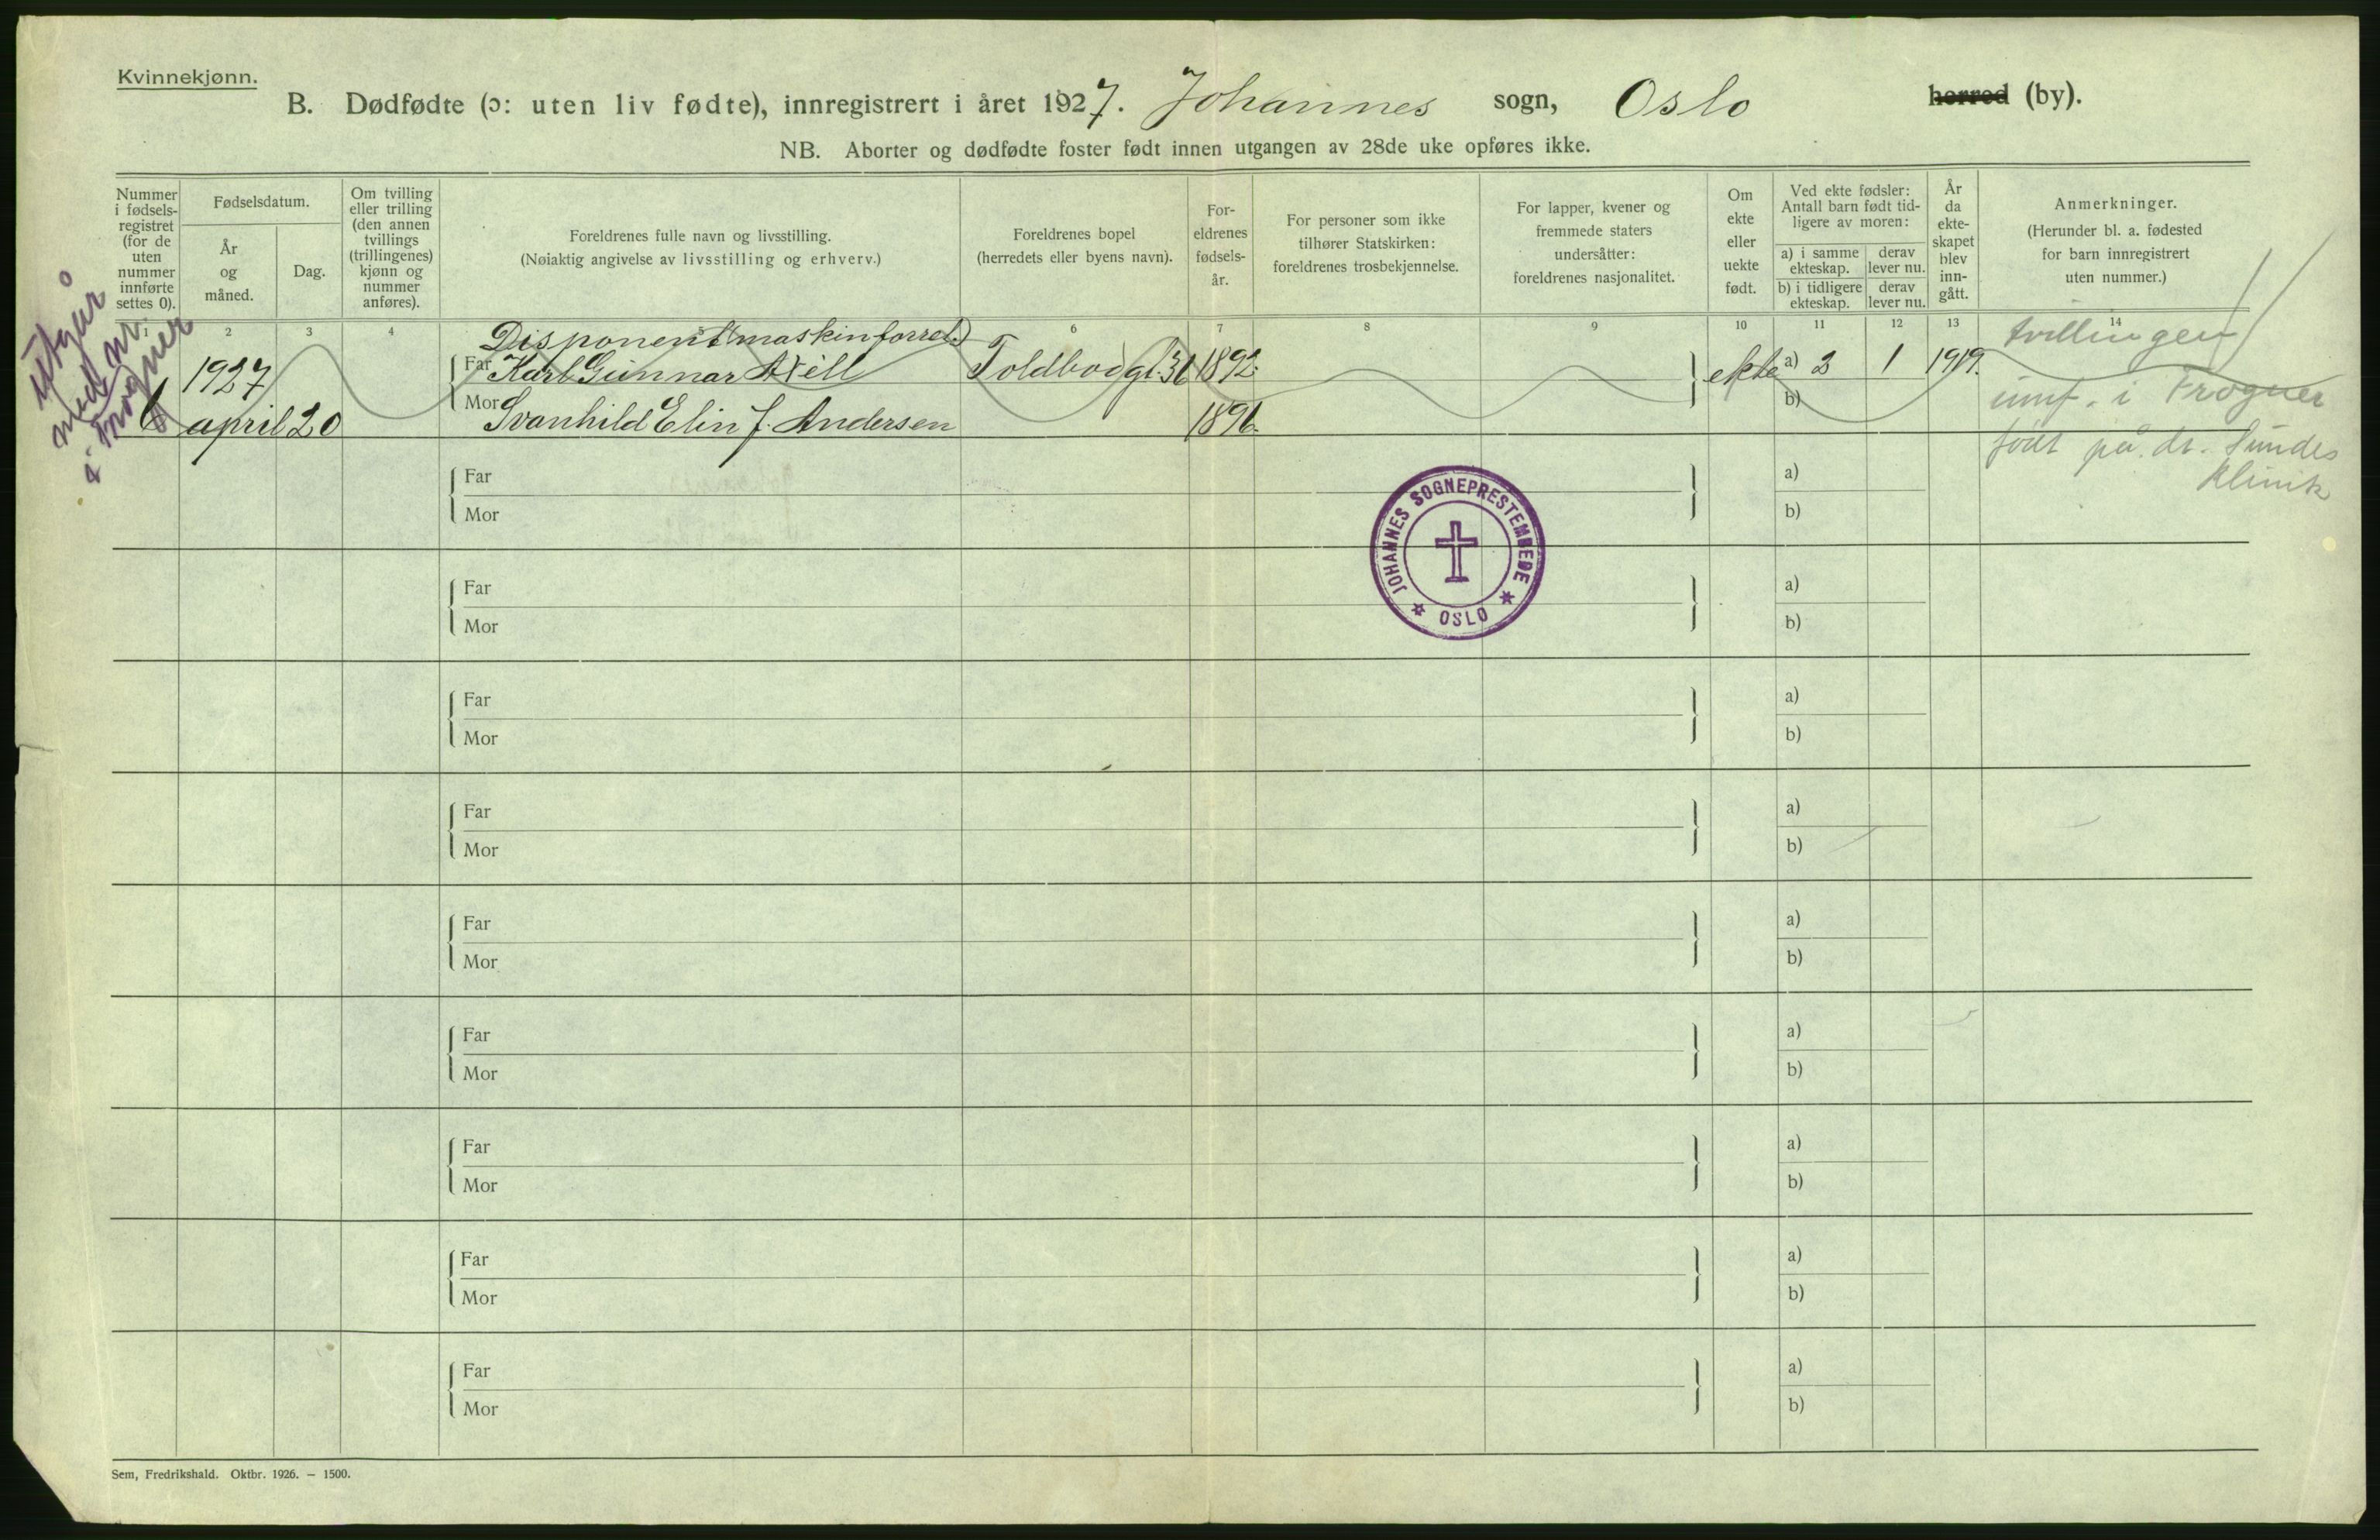 Kvinnekjønn.
B. Dødfødte (ɔ: uten liv fødte), innregistrert i året 1927. Johannes sogn, Oslo herred (by).
NB. Aborter og dødfødte foster født innen utgangen av 28de uke opføres ikke.
Nummer i fødsels-registret (for de uten nummer innførte settes 0).
Fødselsdatum.
År og måned.
Dag.
Om tvilling eller trilling (den annen tvillings (trillingenes) kjønn og nummer anføres).
Foreldrenes fulle navn og livsstilling.
(Nøiaktig angivelse av livsstilling og erhverv.)
Foreldrenes bopel
(herredets eller byens navn).
For-eldrenes fødsels-år.
For personer som ikke tilhører Statskirken: foreldrenes trosbekjennelse.
For lapper, kvener og fremmede staters undersåtter: foreldrenes nasjonalitet.
Om ekte eller uekte født.
Ved ekte fødsler: Antall barn født tid-ligere av moren:
a) i samme ekteskap. derav lever nu.
b) i tidligere ekteskap. derav lever nu.
År da ekte-skapet blev inn-gått.
Anmerkninger.
(Herunder bl. a. fødested for barn innregistrert uten nummer.)
1 2 3 4 5 6 7 8 9 10 11 12 13 14
utgår
med nr.
i Frogner
Disponent maskinforret.
1927 Far Karl Gunnar Toldbodgt. 36 1892. ekte a) 2 1 1919.
6 april 20 Mor Svanhild Elin J. Andersen 1896. b)
tvillingen
innf. i Frogner
født på dr. Sundes
Klinik
Far a)
Mor b)
JOHANNES SOGNEPRESTEMBEDE
OSLO
Far a)
Mor b)
Far a)
Mor b)
Far a)
Mor b)
Far a)
Mor b)
Far a)
Mor b)
Far a)
Mor b)
Far a)
Mor b)
Far a)
Mor b)
Sem, Fredrikshald. Oktbr. 1926. – 1500.